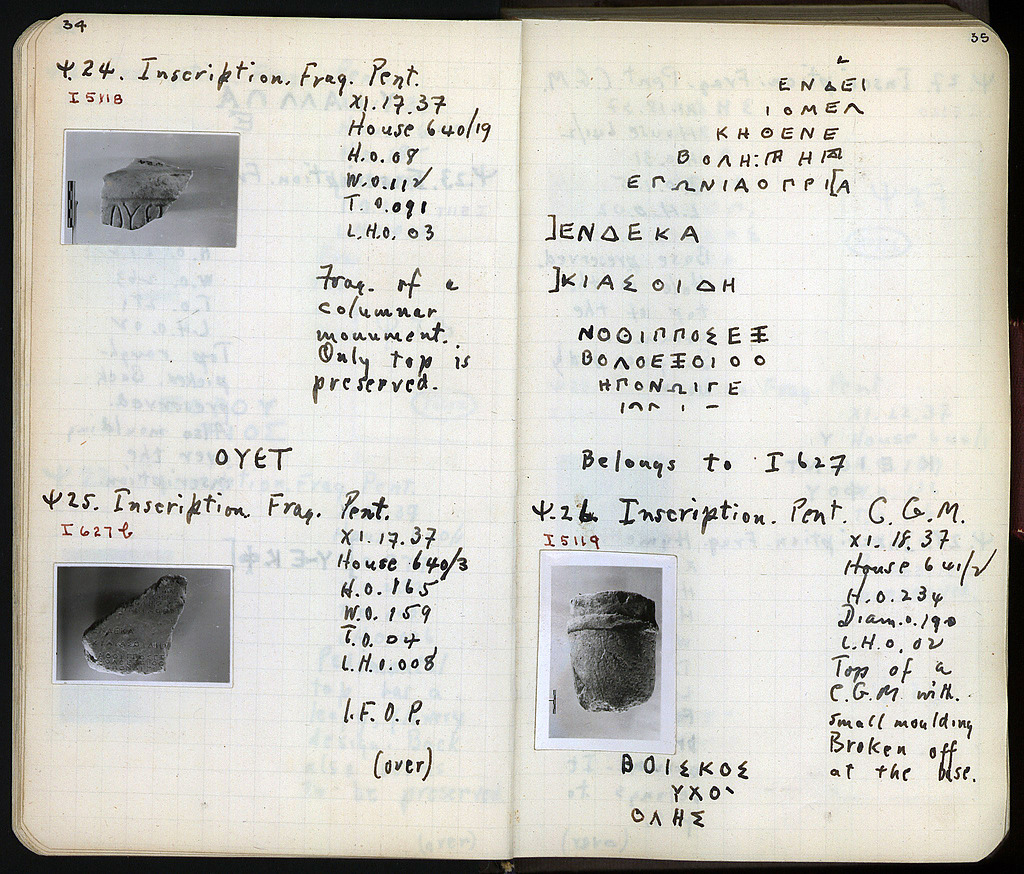 34
Ψ 24. Inscription. Frag. Pent.
I 5118
XI. 17. 37
House 640/19
H. 0. 08
W. 0. 112
T. 0. 091
L.H. 0. 03
Frag. of a
columnar
monument.
Only top is
preserved.
ΟΥΕΤ
Ψ 25. Inscription. Frag. Pent.
I 627 b
XI. 17. 37
House 640/3
H. 0. 165
W. 0. 159
T. 0. 04
L.H. 0. 008
I. F. D. P.
(over)
35
ΕΝΔΕΙ
ΙΟΜΕΛ
ΚΗΘΕΝΕ
ΕΓΩΝΙΔΟΠΡΙ[Α
]ΕΝΔΕΚΑ
]ΚΙΑΣΟΙΔΗ
ΝΟΘΙΠΠΟΣΕΞ
ΒΟΛΟΕΞΟΙΟΟ
ΗΠΟΝΩΙΓΕ
Belongs to I 627
Ψ. 26. Inscription. Pent. C. G. M.
I 5119
XI. 18. 37
House 641/2
H. 0. 234
Diam. 0. 190
L.H. 0. 02
Top of a
C.G.M. with.
small moulding
Broken off
at the base.
ΒΟΙΣΚΟΣ
ΥΧΟ
ΟΛΗΣ